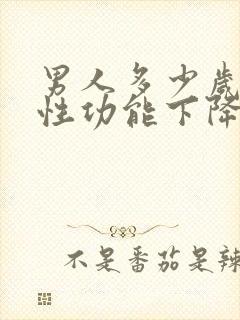 男人多少歲
性功能下降
不是番茄是辣